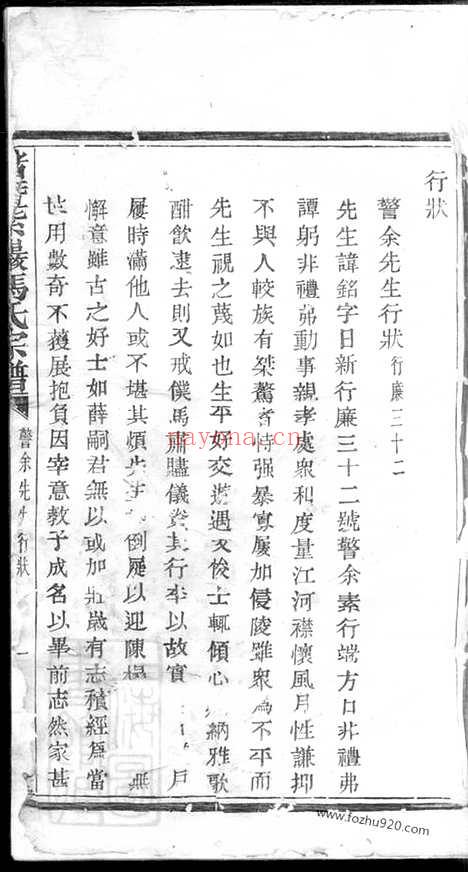 行狀
警余先生行狀行廉三十二
先生諱銘字日新行廉三十二號警余素行端方口非禮弗
譚躬非禮弗動事親孝處衆和度量江河襟懷風月性謙抑
不與人較族有桀驁者恃强暴寡屢加侵陵雖衆為不平而
先生視之蔑如也生平好交遊遇文俊士輒傾心納雅歌
酣飲逮去則又戒僕馬肅贐儀資其行李以故賓戶
屨時滿他人或不堪其煩先生倒屣以迎陳榻無
懈意雖古之好士如薛嗣君無以或加壯歲有志積經為當
世用數奇不獲展抱負因宰意教子成名以畢前志然家甚
巖馬氏宗譜
警余先生行狀
一
nayona.cn
www.fozhu920.com